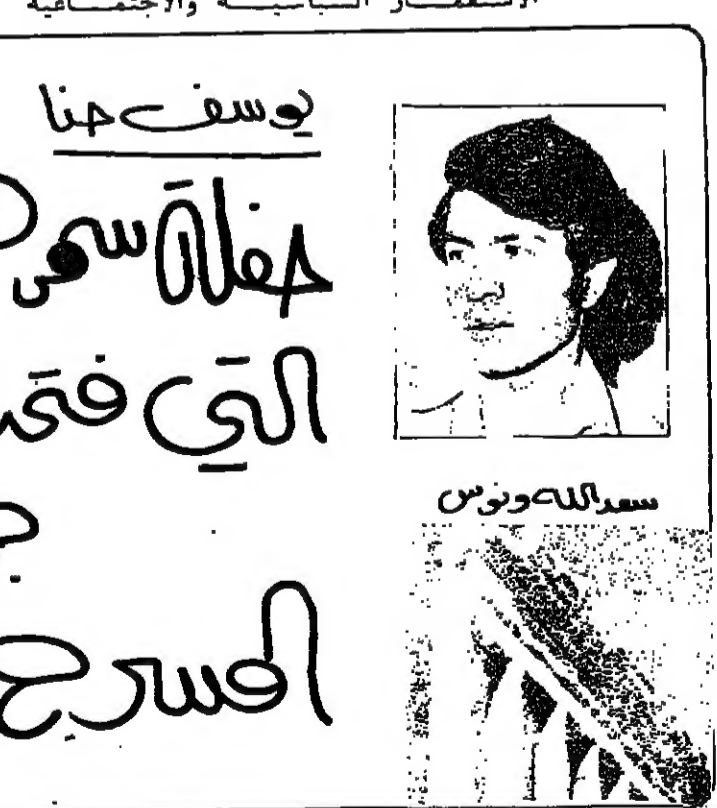 السياسيـــة والاجتمـــاعية
يوسف حنا
حفلة سمر
التي
المسرح
سعد الله ونوس